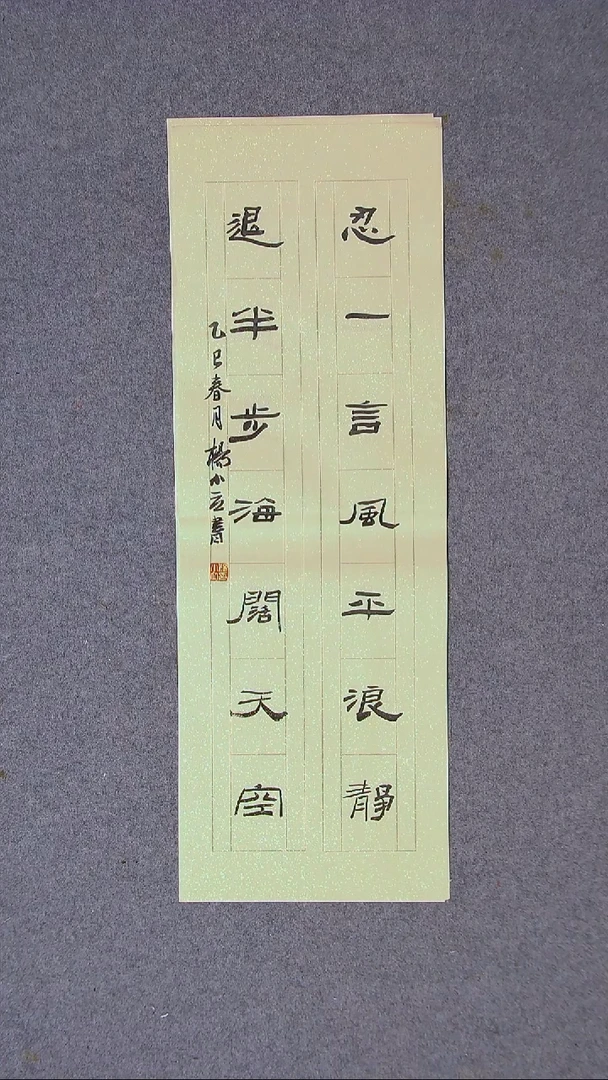 忍一言風平浪靜
退半步海闊天空
乙巳春月楊小立書